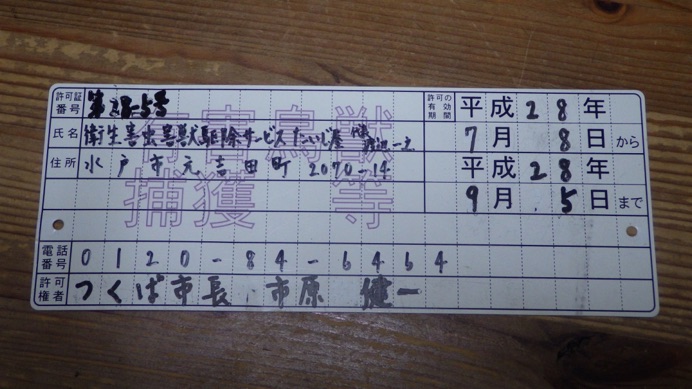 許可証番号 第28-5号
許可の有効期間 平成28年
7月8日から
平成28年
9月5日まで
氏名 衛生害虫害獣駆除サービスたいじ屋
住所 水戸市元吉田町2070-14
有害鳥獣
捕獲等
電話番号 0120-84-6464
許可権者 つくば市長 市原 健一